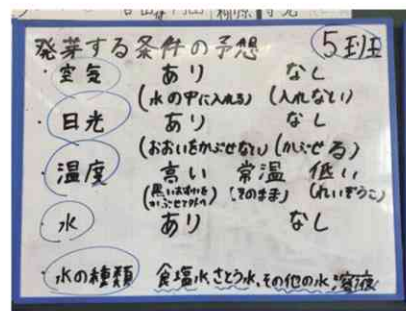 発芽する条件の予想 5班
・空気 あり なし
(水の中に入れる) (入れない)
・日光 あり なし
(おおいをかぶせない) (かぶせる)
・温度 高い 常温 低い
(そのまま) (れいぞうこ)
かぶせて外へ
・水 あり なし
・水の種類 食塩水、さとう水、その他の水溶液